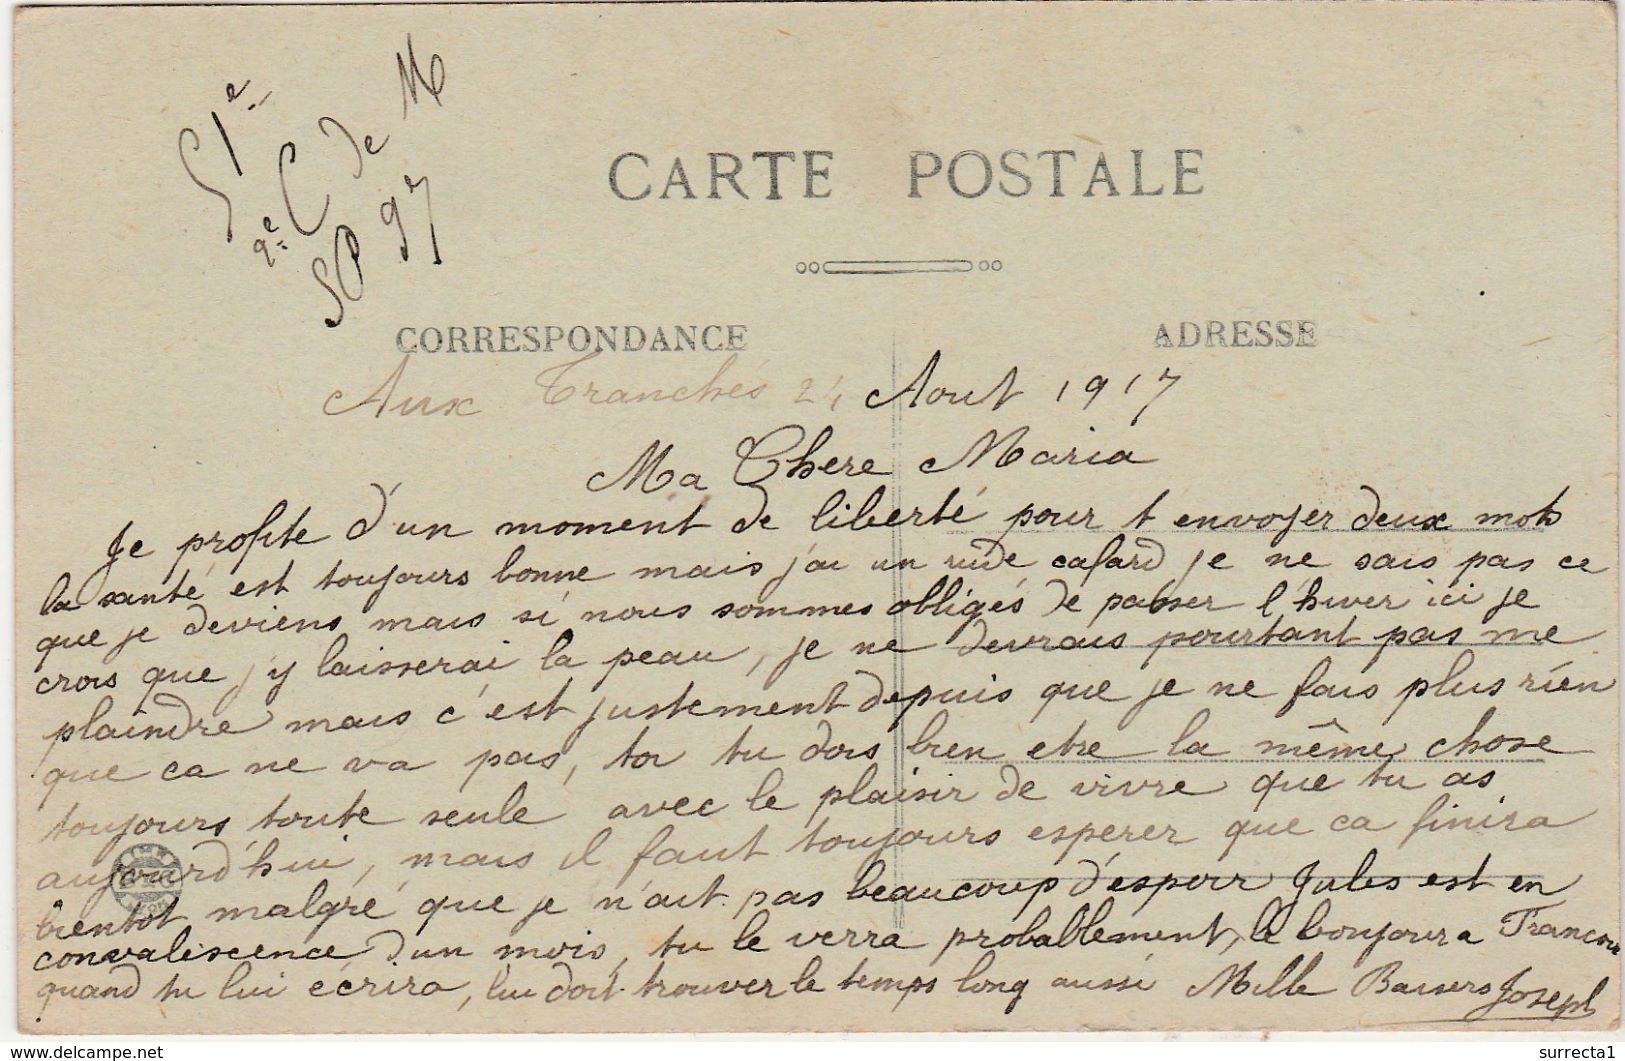 51e
9e C de M
SP 97
CARTE POSTALE
CORRESPONDANCE
ADRESSE
Aux Tranchés 24 Aout 1917
Ma Chere Maria
Je profite d'un moment de liberté pour t envoyer deux mots
la santé est toujours bonne mais j'ai un rude cafard je ne sais pas ce
que je deviens mais si nous sommes obligés de passer l'hiver ici je
crois que j'y laisserai la peau, je ne devrais pourtant pas me
plaindre mais c'est justement depuis que je ne fais plus rien
que ca ne va pas, toi tu dois bien etre la même chose
toujours toute seule avec le plaisir de vivre que tu as
aujourd'hui, mais il faut toujours esperer que ca finira
bientot malgré que je n'ait pas beaucoup d'espoir Jules est en
convalescence d'un mois, tu le verra probablement, le bonjour a Francois
quand tu lui écrira, lui doit trouver le temps long aussi Mille Baisers Joseph
surrecta1
www.delcampe.net